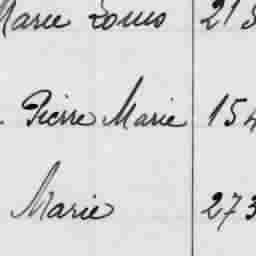 Marie Louis 213
Pierre Marie 154
Marie 273